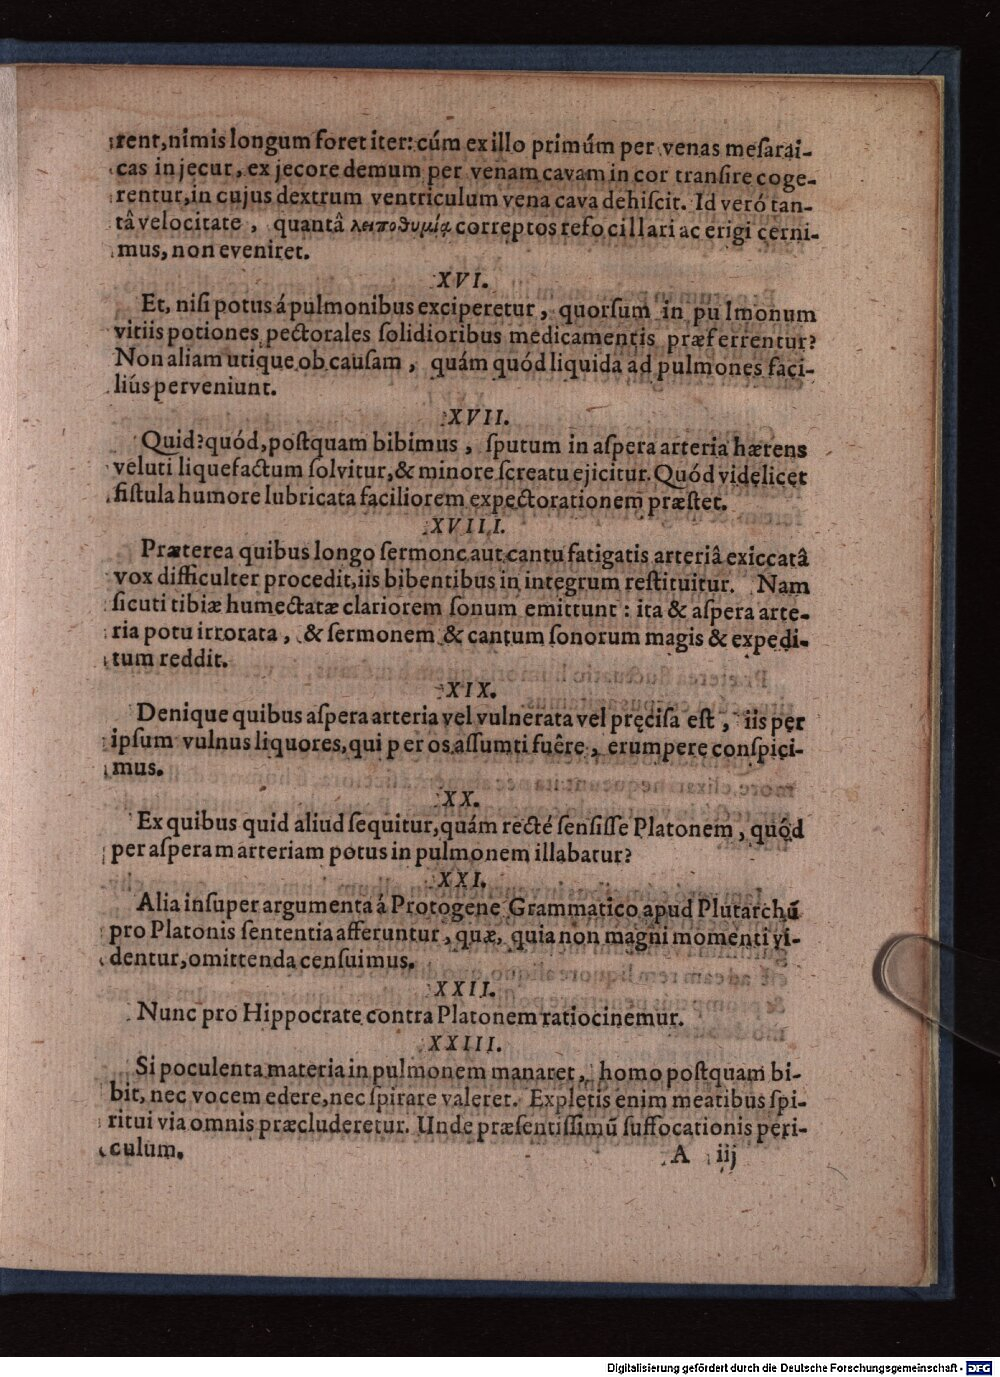 rent, nimis longum foret iter: cúm ex illo primúm per venas meſarai-
cas in jecur, ex jecore demum per venam cavam in cor tranſire coge-
rentur, in cujus dextrum ventriculum vena cava dehiſcit. Id veró tan-
tâ velocitate, quantâ λειποθυμίᾳ correptos refocillari ac erigi cerni-
mus, non eveniret.
XVI.
Et, niſi potus á pulmonibus exciperetur, quorſum in pulmonum
vitiis potiones pectorales ſolidioribus medicamentis præferrentur?
Non aliam utique ob cauſam, quám quód liquida ad pulmones faci-
liús perveniunt.
XVII.
Quid? quód, poſtquam bibimus, ſputum in aſpera arteria hærens
veluti liquefactum ſolvitur, & minore ſcreatu ejicitur. Quód videlicet
fiſtula humore lubricata faciliorem expectorationem præſtet.
XVIII.
Præterea quibus longo ſermone aut cantu fatigatis arteriâ exiccatâ
vox difficulter procedit, iis bibentibus in integrum reſtituitur. Nam
ſicuti tibiæ humectatæ clariorem ſonum emittunt: ita & aſpera arte-
ria potu irrorata, & ſermonem & cantum ſonorum magis & expedi-
tum reddit.
XIX.
Denique quibus aſpera arteria vel vulnerata vel pręciſa eſt, iis per
ipſum vulnus liquores, qui per os aſſumti fuêre, erumpere conſpici-
mus.
XX.
Ex quibus quid aliud ſequitur, quám recté ſenſiſſe Platonem, quód
per aſperam arteriam potus in pulmonem illabatur?
XXI.
Alia inſuper argumenta á Protogene Grammatico apud Plutarchũ
pro Platonis ſententia afferuntur, quæ, quia non magni momenti vi-
dentur, omittenda cenſuimus.
XXII.
Nunc pro Hippocrate contra Platonem ratiocinemur.
XXIII.
Si poculenta materia in pulmonem manaret, homo poſtquam bi-
bit, nec vocem edere, nec ſpirare valeret. Expletis enim meatibus ſpi-
ritui via omnis præcluderetur. Unde præſentiſſimũ ſuffocationis peri-
culum.
A iij
Digitalisierung gefördert durch die Deutsche Forschungsgemeinschaft - DFG